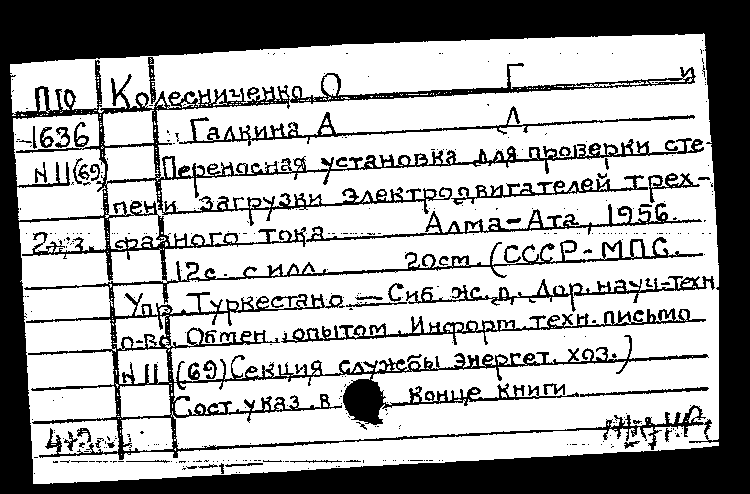 П10 Колесниченко, О Г и
1636 Галкина, А Л.
N 11(69) Переносная установка для проверки сте-
пени загрузки электродвигателей трех-
2экз. фазного тока. Алма-Ата, 1956.
12с. с илл. 20см. (СССР-МПС.
Упр. Туркестано-Сиб. ж.д. Дор. науч-техн
о-во. Обмен опытом. Информ. техн. письмо
N 11 (69) Секция службы энергет. хоз.)
Сост. указ. в конце книги